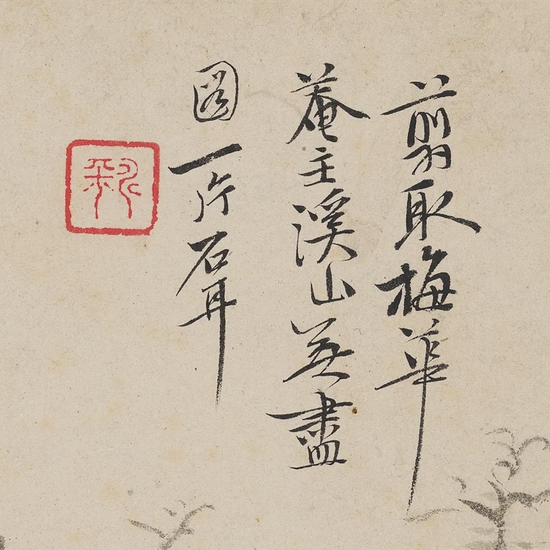 翦取梅華
菴主溪山無盡
圖一片石耳